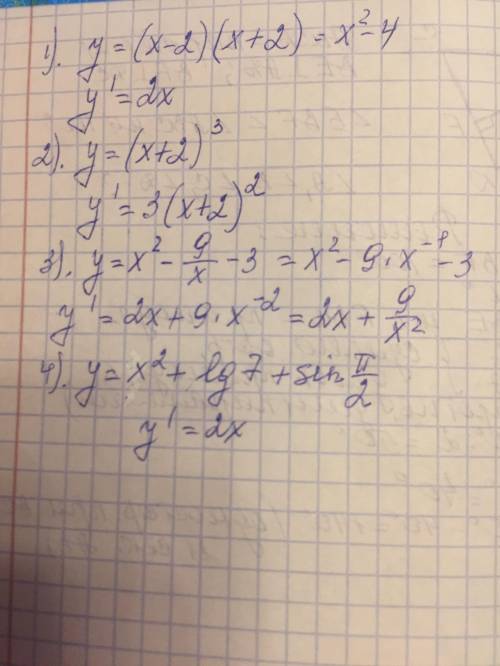 1). y = (x-2)(x+2) = x² - 4
y' = 2x
2). y = (x+2)³
y' = 3(x+2)²
3). y = x² - 9/x - 3 = x² - 9·x⁻¹ - 3
y' = 2x + 9·x⁻² = 2x + 9/x²
4). y = x² + lg7 + sin π/2
y' = 2x